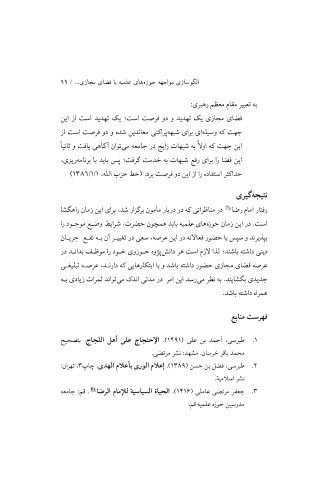 الگوسازی مواجهه حوزه‌های علمیه با فضای مجازی... / ۹۹
به تعبیر مقام معظم رهبری:
فضای مجازی یک تهدید و دو فرصت است؛ یک تهدید است از این
جهت که وسیله‌ای برای شبهه‌پراکنی معاندین شده و دو فرصت از
این جهت که اولاً به شبهات رایج در جامعه می‌توان آگاهی یافت و ثانیاً
این فضا را برای رفع شبهات به خدمت گرفت؛ پس باید با برنامه‌ریزی،
حداکثر استفاده را از این دو فرصت برد. (خط حزب الله، ۱۳۸۶/۱/۱)
نتیجه‌گیری
رفتار امام رضا در مناظراتی که در دربار مأمون برگزار شد، برای این زمان راهگشا
است. در این زمان حوزه‌های علمیه باید همچون حضرت، شرایط وضع موجود را
بپذیرند و سپس با حضور فعالانه در این عرصه، سعی در تغییر آن به نفع جریان
دینی داشته باشند؛ لذا لازم است هر دانش‌پژوه حوزوی خود را موظف بداند در
عرصه فضای مجازی حضور داشته باشد و با ابتکارهایی که دارند، عرصه تبلیغی
جدیدی بگشایند. به نظر می‌رسد این امر در مدتی اندک می‌تواند ثمرات زیادی به
همراه داشته باشد.
فهرست منابع
۱. طبرسی، احمد بن علی (۱۳۹۱). الإحتجاج علی أهل اللجاج. بتصحیح
محمد باقر خرسان. مشهد: نشر مرتضی.
۲. طبرسی، فضل بن حسن (۱۳۸۹). إعلام الوری بأعلام الهدی. چاپ۳. تهران:
نشر اسلامیة.
۳. جعفر مرتضی عاملی (۱۴۱۶). الحیاة السیاسیة للإمام الرضا. قم: جامعه
مدرسین حوزه علمیه قم.